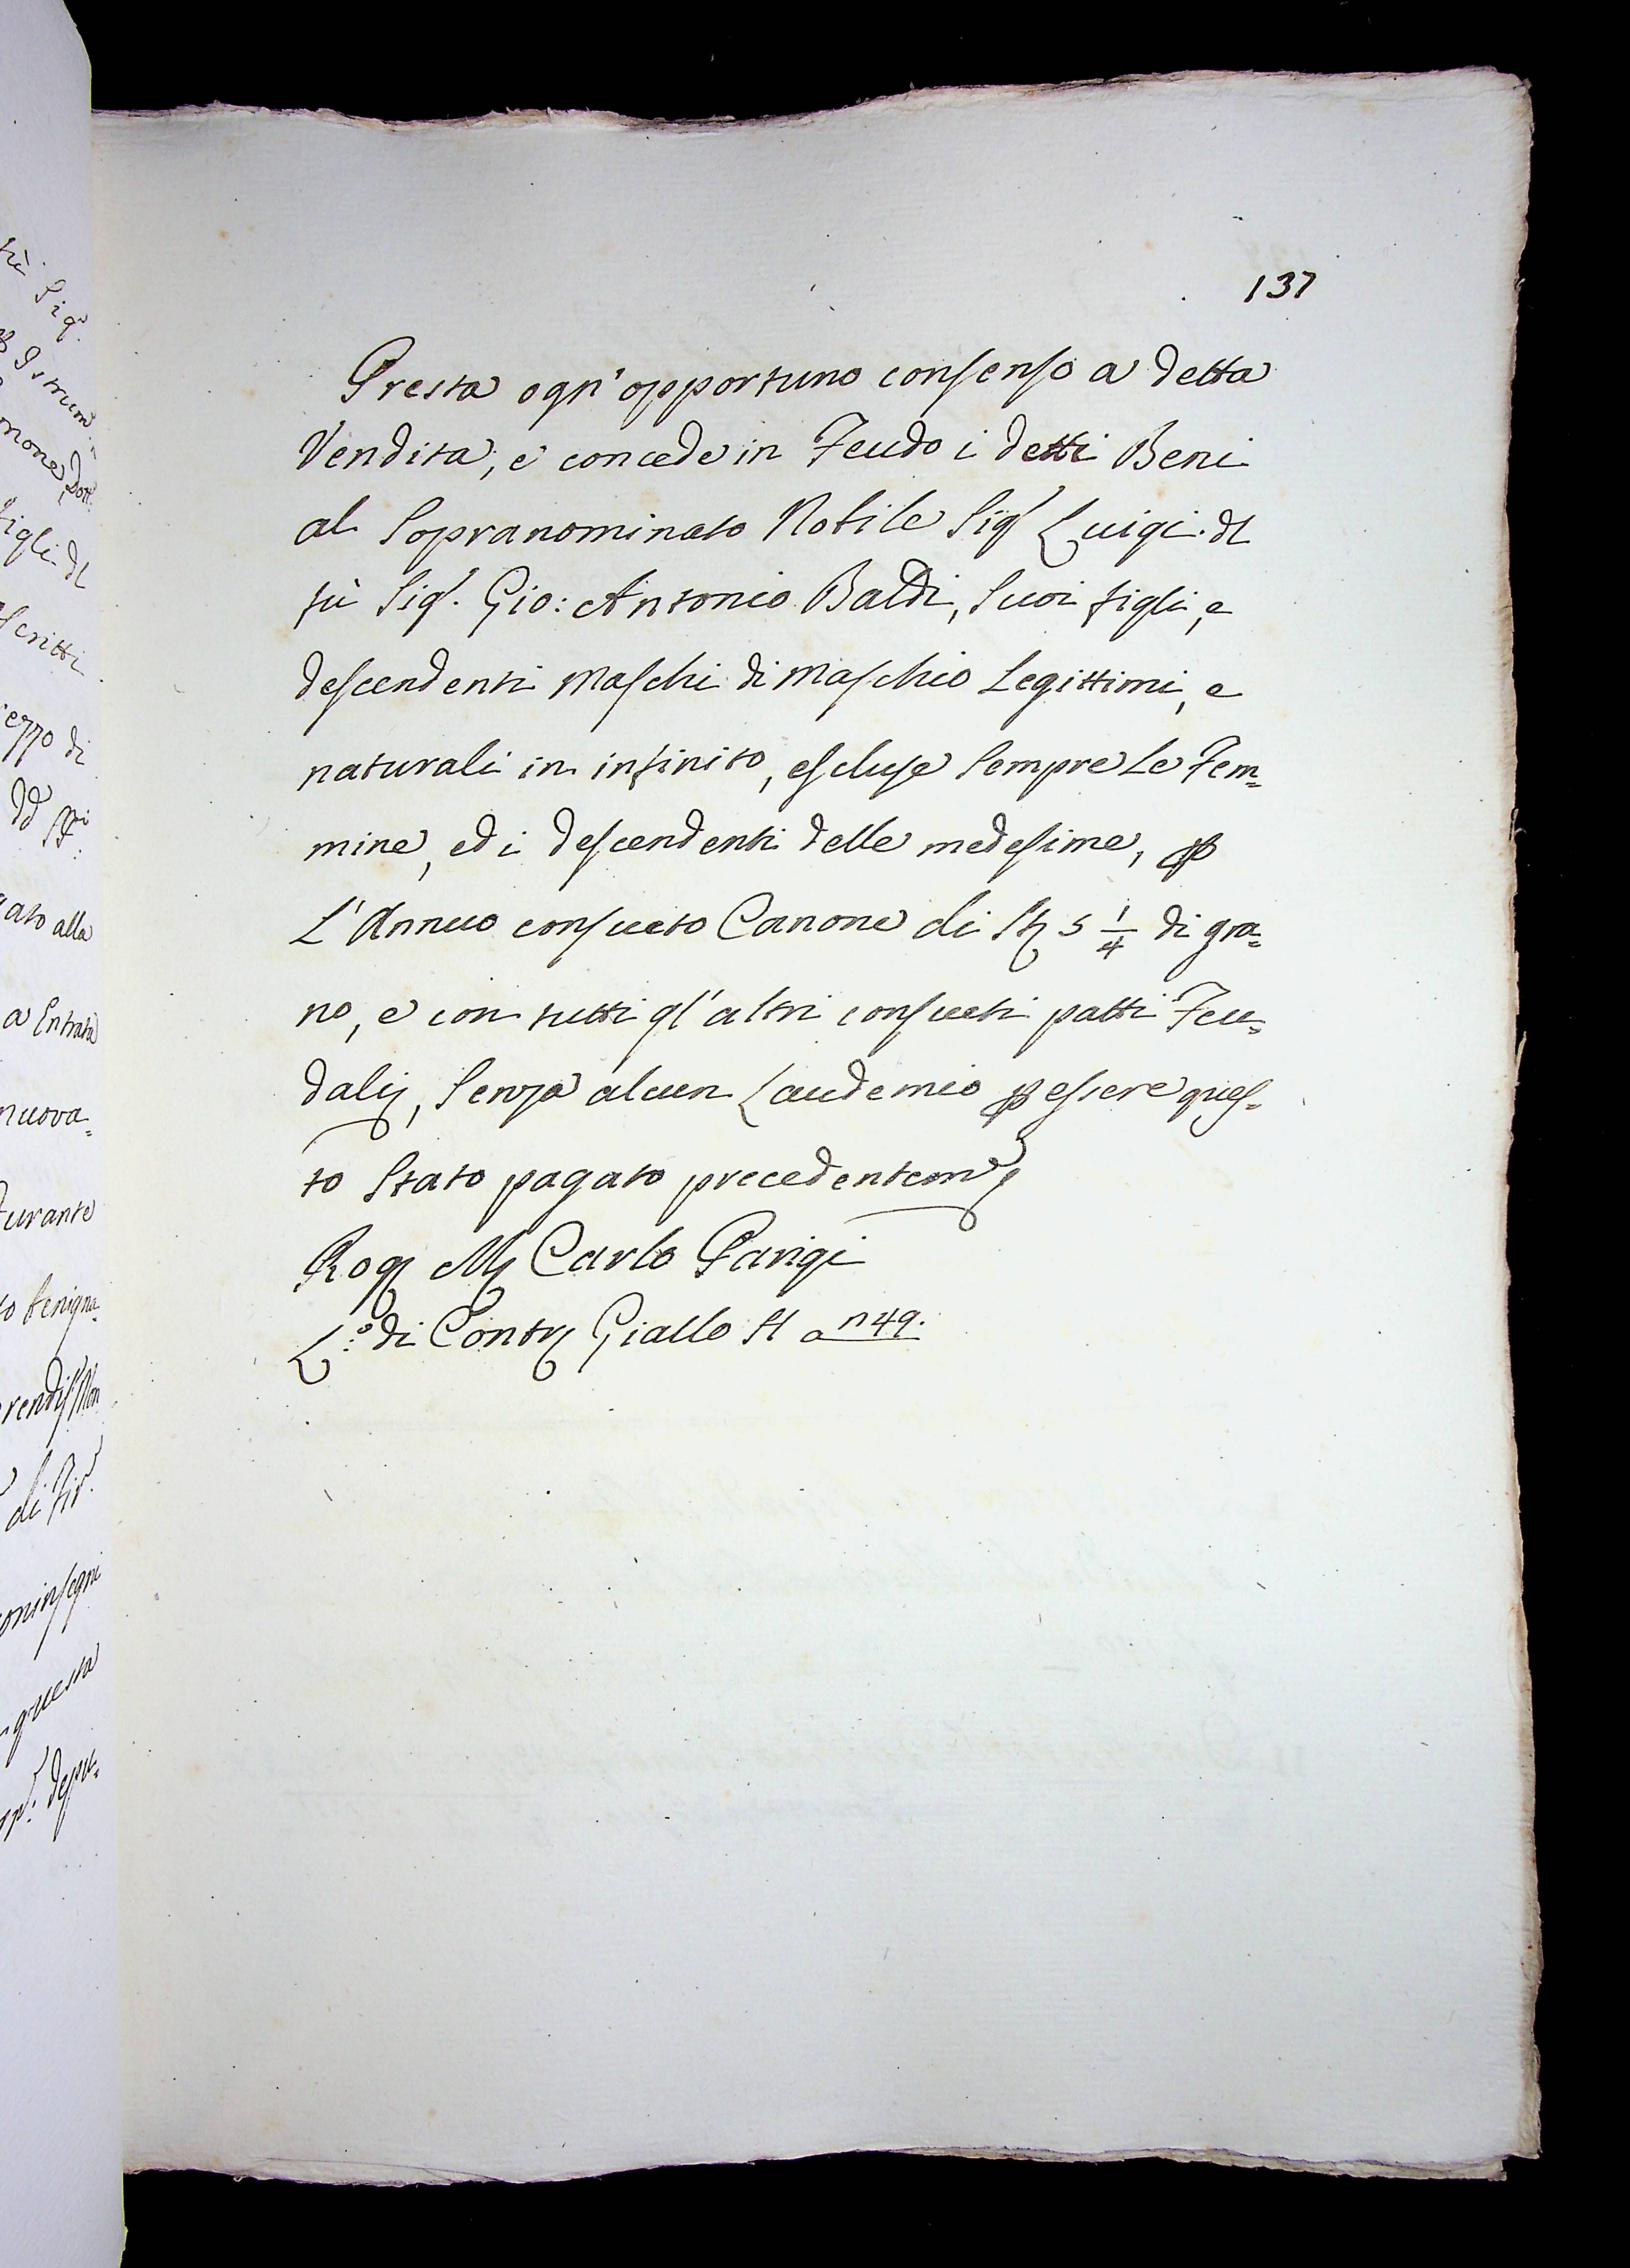 137
Presta ogn' opportuno consenso a detta
Vendita, e concede in Feudo i detti Beni
al Sopranominato Nobile Sig.r Luigi dl
fù Sig.r Gio: Antonio Baldi, Suoi figli, e
descendenti Maschi di Maschio Legittimi, e
naturali in infinito, escluse Sempre Le Fem=
mine, ed i descendenti delle medesime, p
L'Annuo consueto Canone di St 5 1/4 di gra=
no, e con tutti gl'altri consueti patti Feu=
dalij, Senza alcun Laudemio p essere ques=
to Stato pagato precedentem.e
Rog Mr Carlo Parigi
L.o di Contr Giallo St a n 49.
trè Sig.r
figli dl
scritti
ezzo di
ato alla
a Entrata
nuova=
durante
to benigna=
di Fir.
questa
depu=